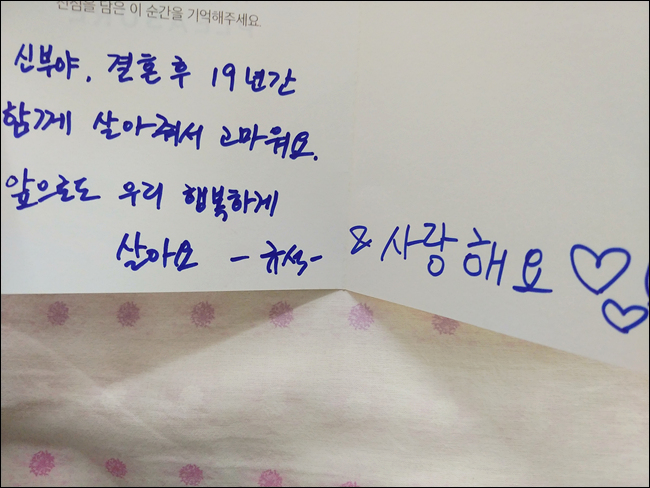 진심을 담은 이 순간을 기억해주세요.
신부야, 결혼 후 19년간
함께 살아줘서 고마워요.
앞으로도 우리 행복하게
살아요 -규석-
& 사랑해요 ♡♡